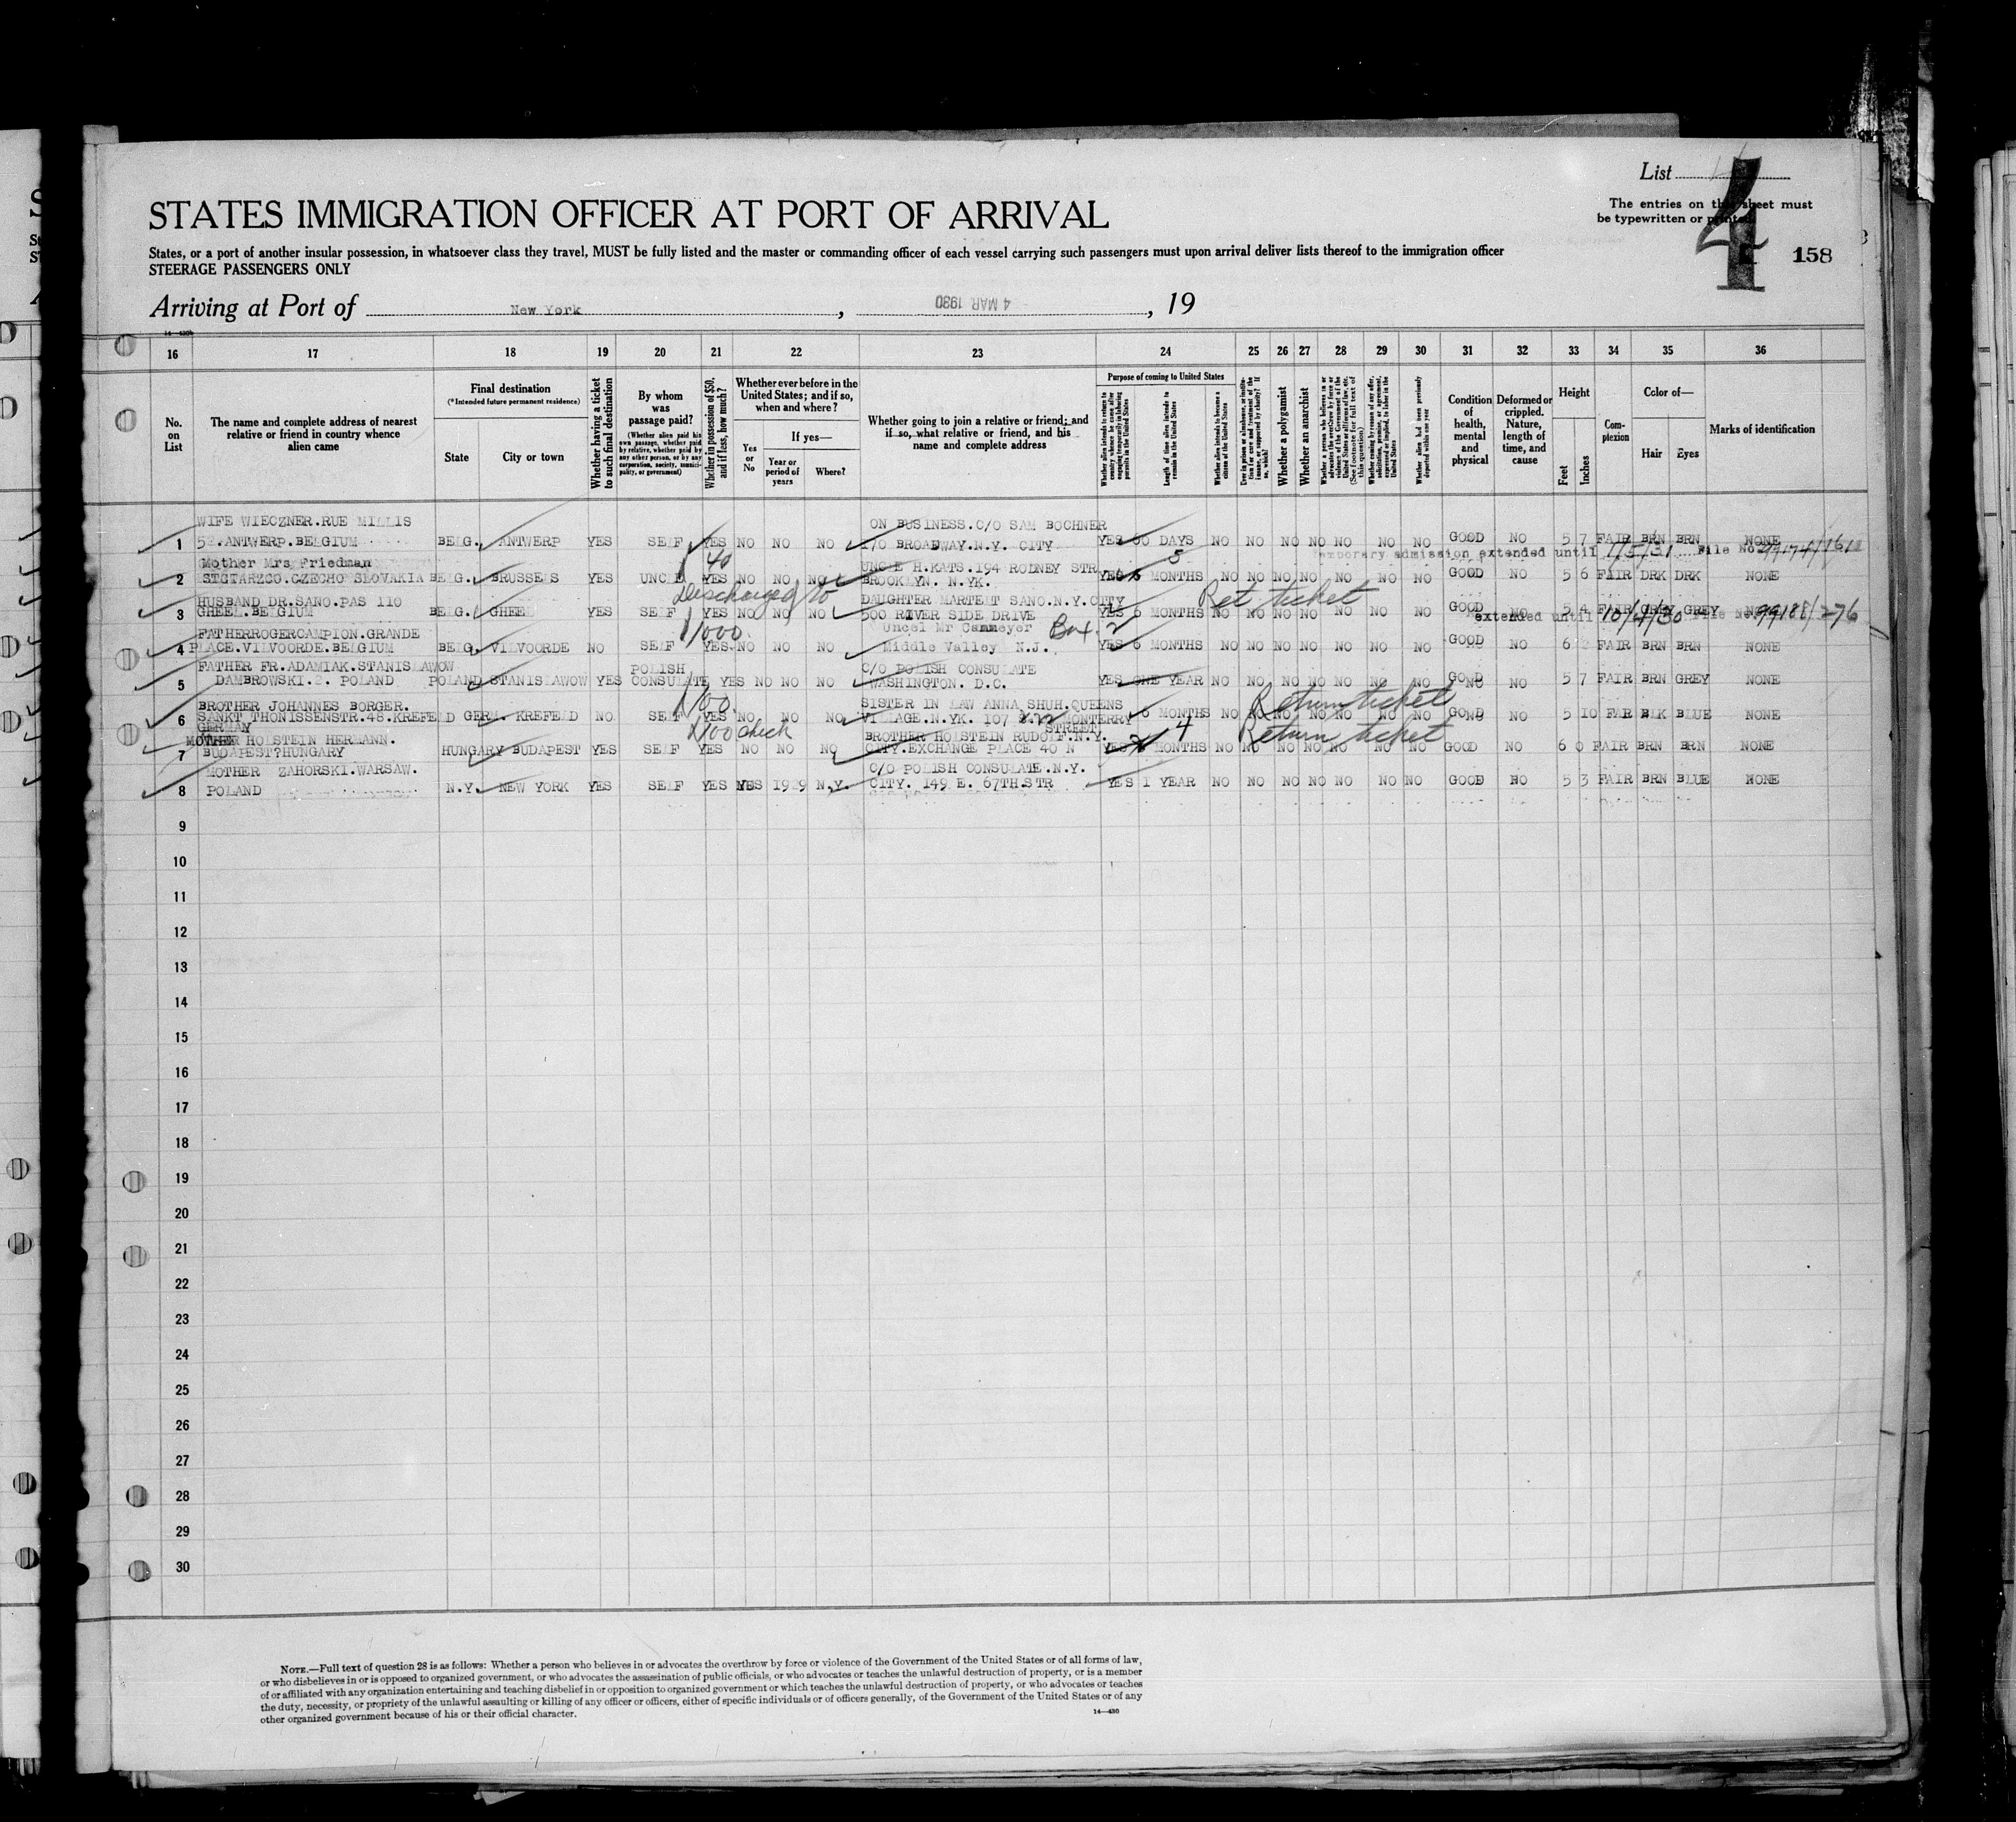 List 4
The entries on this sheet must
be typewritten or printed
158
STATES IMMIGRATION OFFICER AT PORT OF ARRIVAL
States, or a port of another insular possession, in whatsoever class they travel, MUST be fully listed and the master or commanding officer of each vessel carrying such passengers must upon arrival deliver lists thereof to the immigration officer
STEERAGE PASSENGERS ONLY
Arriving at Port of New York, 4 MAR 1930, 19
14—430b
16 17 18 19 20 21 22 23 24 25 26 27 28 29 30 31 32 33 34 35 36
No. on List
The name and complete address of nearest relative or friend in country whence alien came
Final destination
(*Intended future permanent residence)
State City or town
Whether having a ticket to such final destination
By whom was passage paid?
(Whether alien paid his own passage, whether paid by relative, whether paid by any other person, or by any corporation, society, municipality, or government)
Whether in possession of $50, and if less, how much?
Whether ever before in the United States; and if so, when and where?
Yes or No
If yes—
Year or period of years
Where?
Whether going to join a relative or friend; and if so, what relative or friend, and his name and complete address
Purpose of coming to United States
Whether alien intends to return to country whence he came after engaging temporarily in laboring pursuits in the United States
Length of time alien intends to remain in the United States
Whether alien intends to become a citizen of the United States
Ever in prison or almshouse, or institution for care and treatment of the insane, or supported by charity? If so, which?
Whether a polygamist
Whether an anarchist
Whether a person who believes in or advocates the overthrow by force or violence of the Government of the United States or all forms of law, etc. (See footnote for full text of this question)
Whether coming by reason of any offer, solicitation, promise, or agreement, expressed or implied, to labor in the United States
Whether alien had been previously deported within one year
Condition of health, mental and physical
Deformed or crippled. Nature, length of time, and cause
Height
Feet Inches
Complexion
Color of—
Hair Eyes
Marks of identification
WIFE WIECZNER.RUE MILLIS ON BUSINESS.C/O SAM BOCHNER
1 52.ANTWERP.BELGIUM BELG. ANTWERP YES SELF YES NO NO NO 170 BROADWAY.N.Y. CITY YES 60 DAYS NO NO NO NO NO NO NO GOOD NO 5 7 FAIR BRN BRN NONE
Temporary admission extended until 1/5/31 File No
Mother Mrs Friedman 40 UNCLE H.KATS.194 RODNEY STR 5
2 CZECHO SLOVAKIA BELG. BRUSSELS YES UNCLE YES NO NO NO BROOKLYN. N.YK. YES 6 MONTHS NO NO NO NO NO NO NO GOOD NO 5 6 FAIR DRK DRK NONE
Discharged to Ret ticket
HUSBAND DR.SANO.PAS 110 DAUGHTER SANO.N.Y.CITY
3 GHEEL.BELGIUM BELG. GHEEL YES SELF YES NO NO NO 500 RIVER SIDE DRIVE YES 6 MONTHS NO NO NO NO NO NO NO GOOD NO 5 4 FAIR GREY GREY NONE
extended until 10/4/30 File No. 99188/276
1000. Uncel Mr Cammeyer Box. 2
FATHERROGERCAMPION.GRANDE
4 PLACE.VILVOORDE.BELGIUM BELG. VILVOORDE NO SELF YES NO NO NO Middle Valley N.J. YES 6 MONTHS NO NO NO NO NO NO NO GOOD NO 6 2 FAIR BRN BRN NONE
FATHER FR.ADAMIAK.STANISLAWOW POLISH C/O POLISH CONSULATE
5 DAMBROWSKI.2. POLAND POLAND STANISLAWOW YES CONSULATE YES NO NO NO WASHINGTON. D.C. YES ONE YEAR NO NO NO NO NO NO NO GOOD NO 5 7 FAIR BRN GREY NONE
BROTHER JOHANNES BORGER. 100. SISTER IN LAW ANNA SHUH.QUEENS Return ticket
6 SANKT THONISSENSTR.48.KREFELD GERM. KREFELD NO SELF YES NO NO NO VILLAGE.N.YK. 107 MONTERRY STREET 6 MONTHS NO NO NO NO NO NO NO GOOD NO 5 10 FAR BLK BLUE NONE
GERMANY 100 check 4 Return ticket
MOTHER HOLSTEIN HERMANN. BROTHER HOLSTEIN RUDOLF.N.Y.
7 BUDAPEST?HUNGARY HUNGARY BUDAPEST YES SELF YES NO NO NO CITY.EXCHANGE PLACE 40 N YES MONTHS NO NO NO NO NO NO NO GOOD NO 6 0 FAIR BRN BRN NONE
MOTHER ZAHORSKI.WARSAW. C/O POLISH CONSULATE.N.Y.
8 POLAND N.Y. NEW YORK YES SELF YES YES 1929 N.Y. CITY. 149 E. 67TH.STR YES 1 YEAR NO NO NO NO NO NO NO GOOD NO 5 3 FAIR BRN BLUE NONE
9
10
11
12
13
14
15
16
17
18
19
20
21
22
23
24
25
26
27
28
29
30
NOTE.—Full text of question 28 is as follows: Whether a person who believes in or advocates the overthrow by force or violence of the Government of the United States or of all forms of law,
or who disbelieves in or is opposed to organized government, or who advocates the assassination of public officials, or who advocates or teaches the unlawful destruction of property, or is a member
of or affiliated with any organization entertaining and teaching disbelief in or opposition to organized government or which teaches the unlawful destruction of property, or who advocates or teaches
the duty, necessity, or propriety of the unlawful assaulting or killing of any officer or officers, either of specific individuals or of officers generally, of the Government of the United States or of any
other organized government because of his or their official character.
14—430